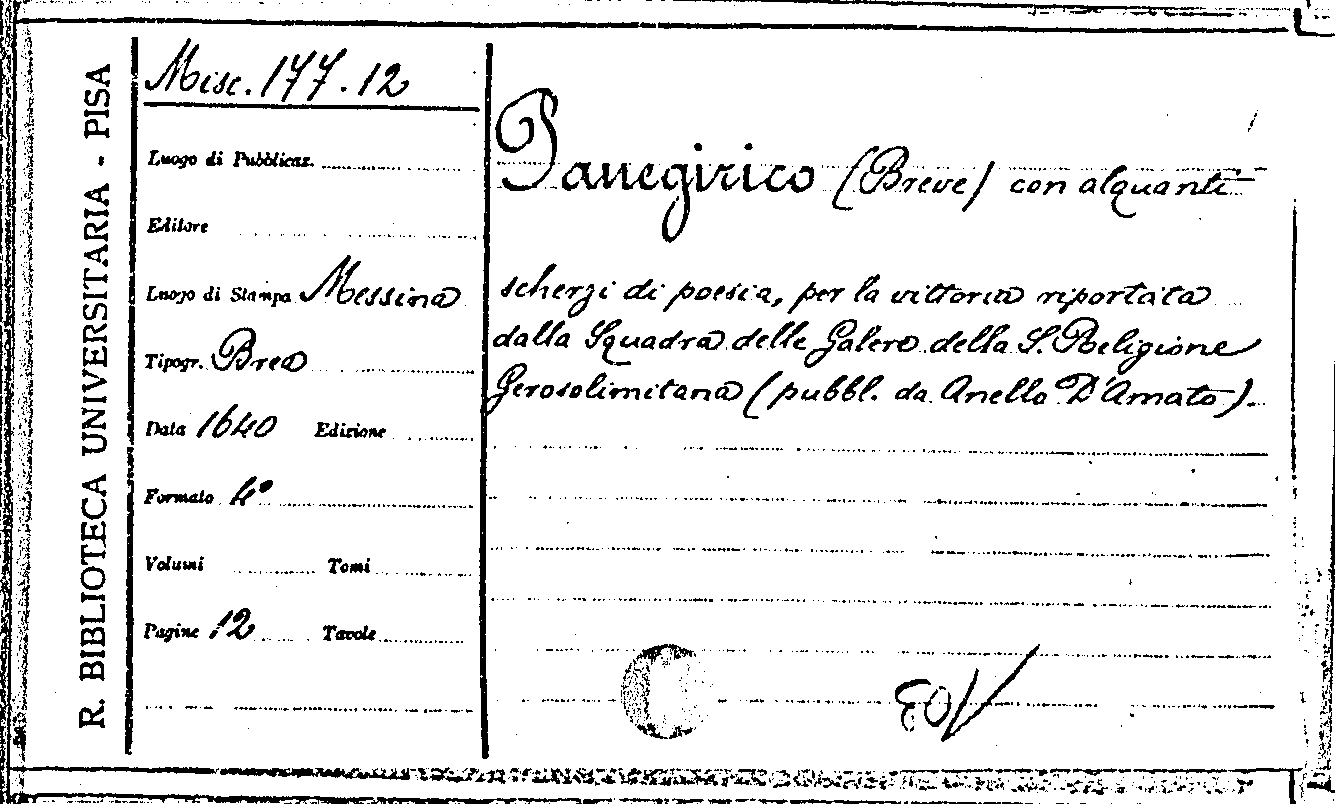 R. BIBLIOTECA UNIVERSITARIA - PISA
Misc. 177.12
Luogo di Pubblicaz.
Editore
Luogo di Stampa Messina
Tipogr. Brea
Data 1640 Edizione
Formato 4°
Volumi Tomi
Pagine 12 Tavole
Panegirico (Breve) con alquanti
scherzi di poesia, per la vittoria riportata
dalla Squadra delle Galere della S. Religione
Gerosolimitana (pubbl. da Anello D'Amato).